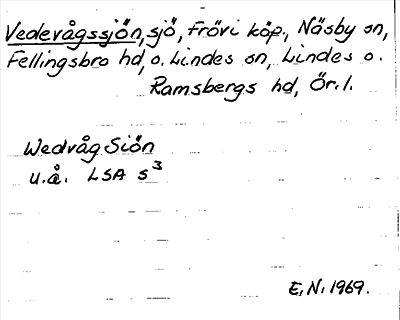 Vedevågssjön, sjö, Frövi köp., Näsby sn,
Fellingsbro hd, o. Lindes sn, Lindes o.
Ramsbergs hd, Ör. l.
Wedvåg Siön
u.å. LSA s³
E. N. 1969.